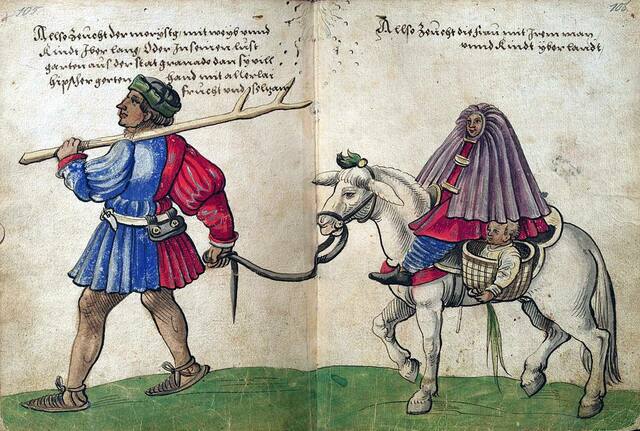 105
Allso zeucht der morysch mit weyb vnnd
Kindt Iber lanz Oder In seinen lust
garten aus der stat granada dan sy vill
hipscher gerten hand mit allerlai
frucht vnd selzam
106
Allso Zeucht die frau mit Irem man
vnnd Kindt yber landt